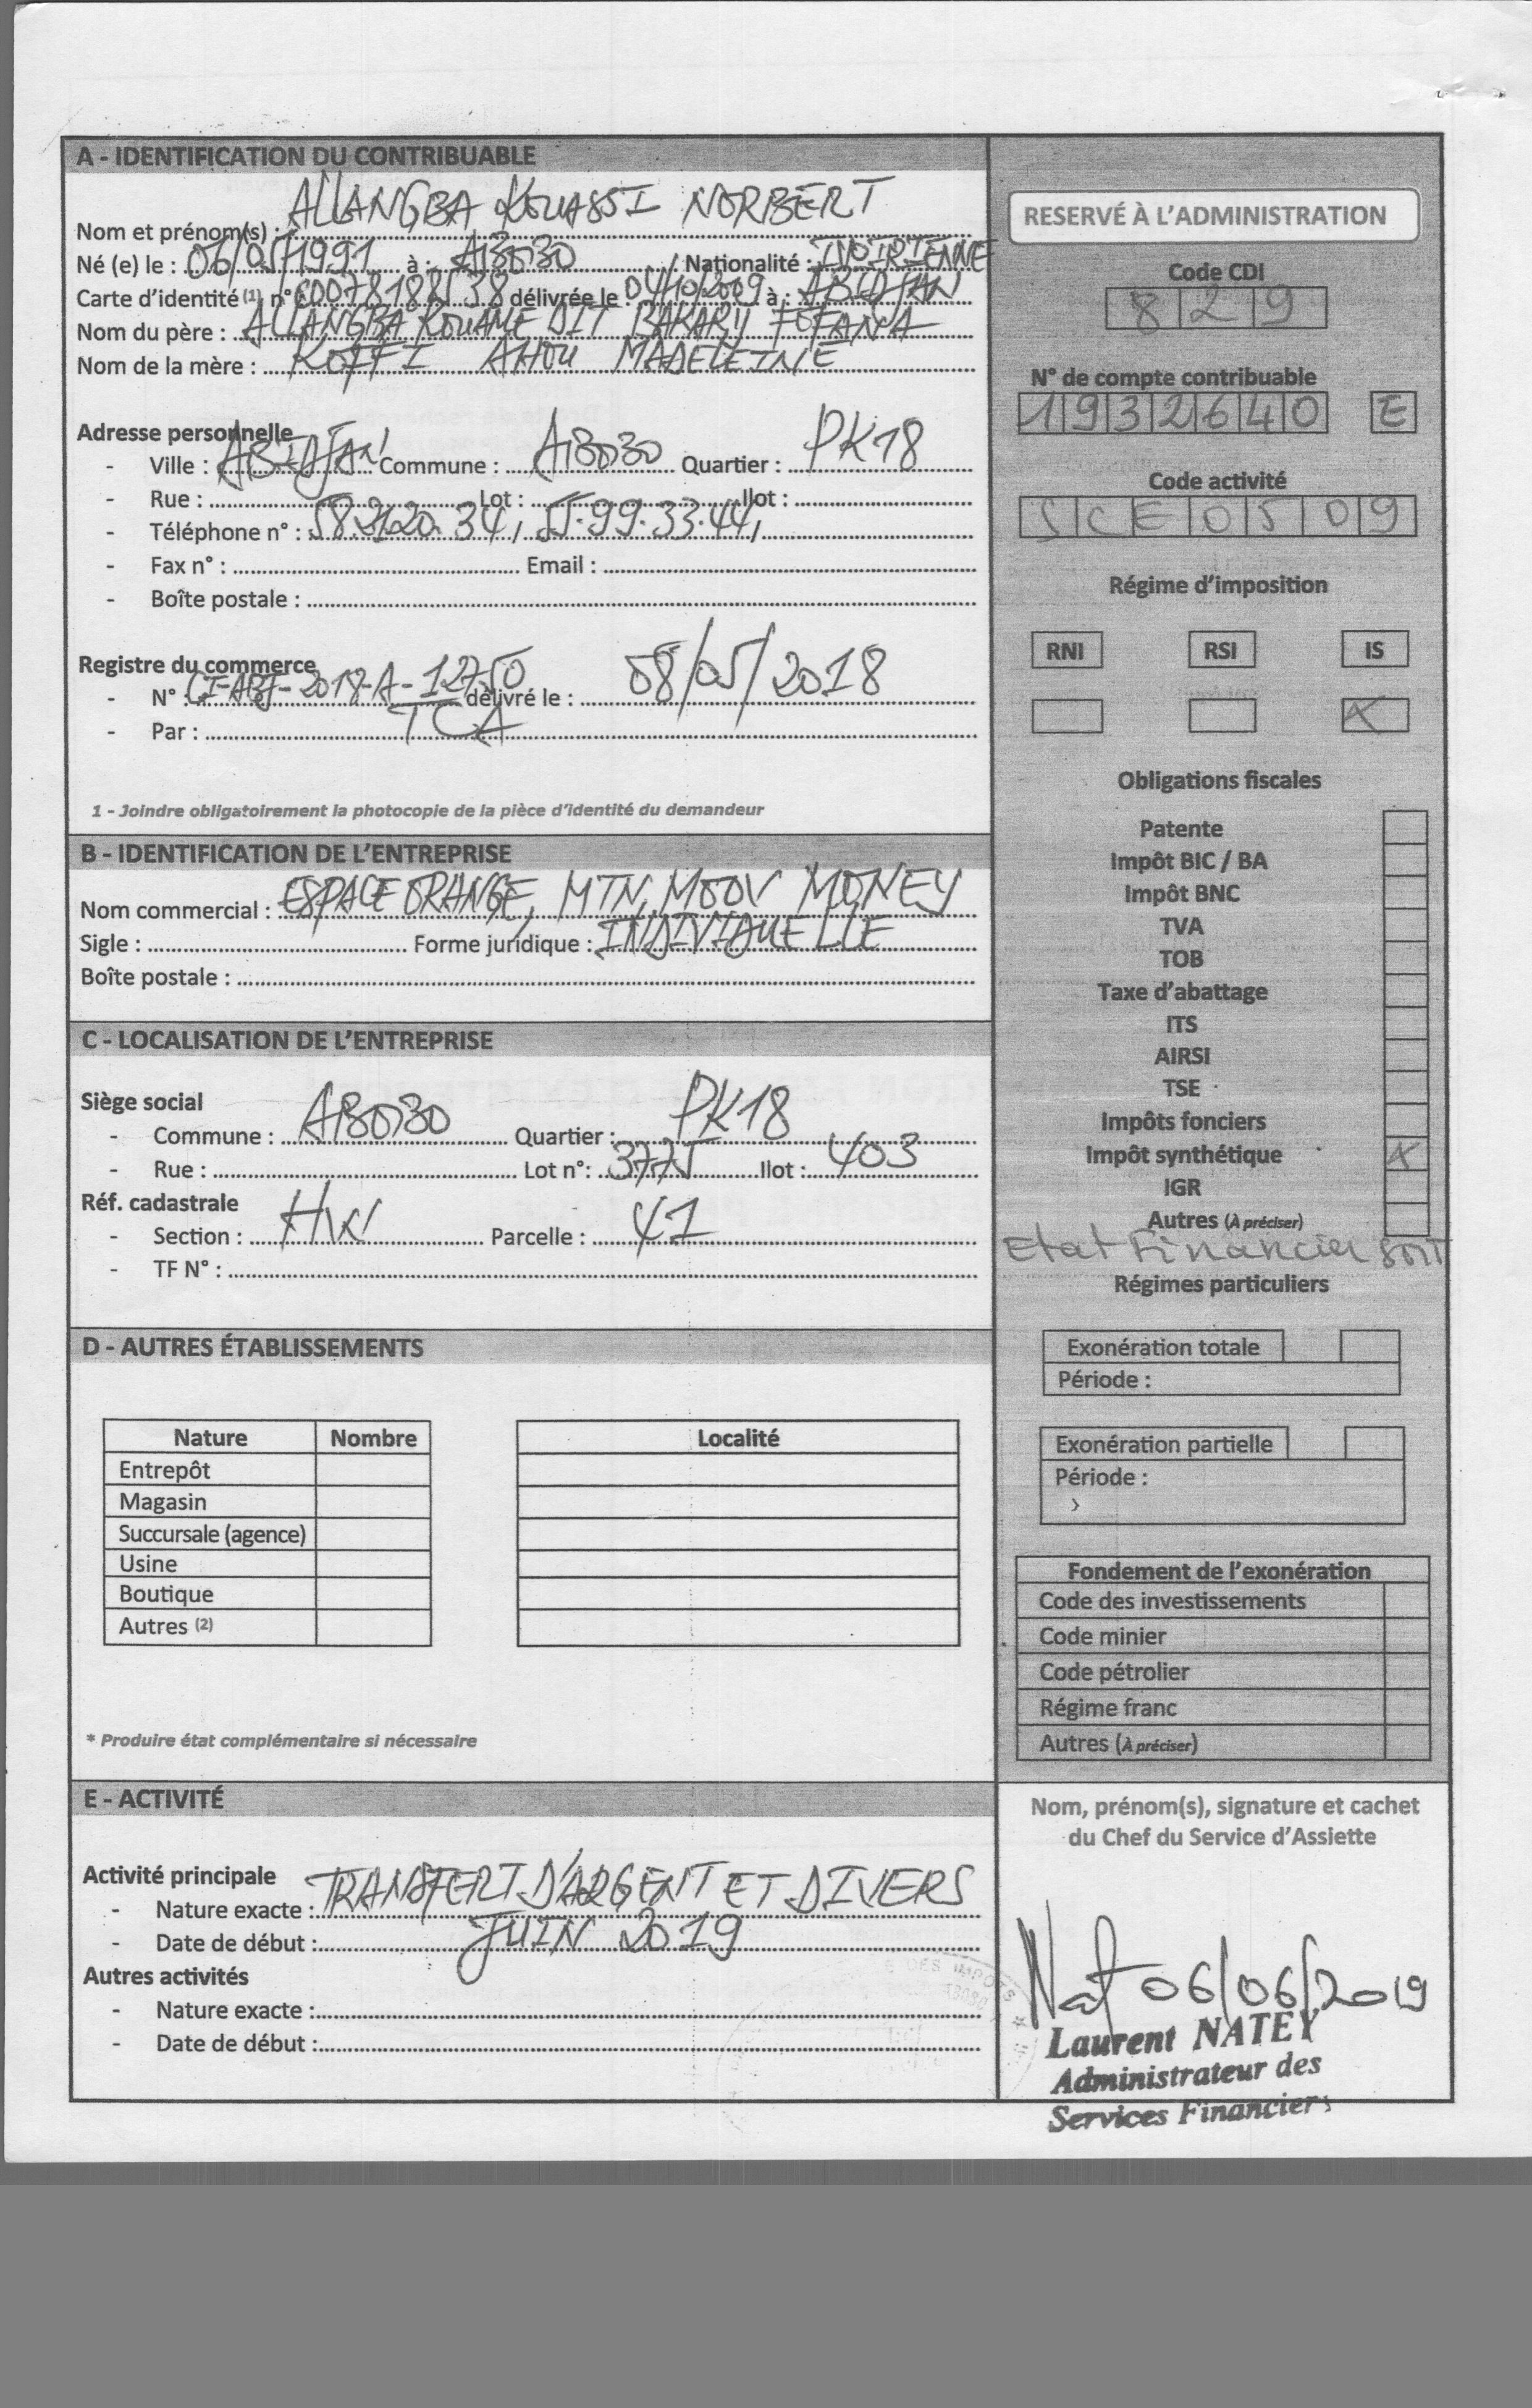 A - IDENTIFICATION DU CONTRIBUABLE
Nom et prénom(s) : ALLANGBA KOUASSI NORBERT
Né (e) le : 06/05/1991 à : ABOBO / Nationalité : IVOIRIENNE
Carte d'identité (1) n° C0078188138 délivrée le 04/10/2009 à : ABIDJAN
Nom du père : ALLANGBA KOUAME DIT BAKARY FOFANA
Nom de la mère : KOFFI AHOU MADELEINE
Adresse personnelle
- Ville : ABIDJAN Commune : ABOBO Quartier : PK18
- Rue : Lot : Ilot :
- Téléphone n° : 58.21.20.34, 55.99.33.44,
- Fax n° : Email :
- Boîte postale :
Registre du commerce
- N° : CI-ABJ-2018-A-12750 délivré le : 08/05/2018
- Par : TCA
1 - Joindre obligatoirement la photocopie de la pièce d'identité du demandeur
B - IDENTIFICATION DE L'ENTREPRISE
Nom commercial : ESPACE ORANGE, MTN, MOOV MONEY
Sigle : Forme juridique : INDIVIDUELLE
Boîte postale :
C - LOCALISATION DE L'ENTREPRISE
Siège social
- Commune : ABOBO Quartier : PK18
- Rue : Lot n°: 3775 Ilot : 403
Réf. cadastrale
- Section : HW Parcelle : 41
- TF N° :
D - AUTRES ÉTABLISSEMENTS
Nature Nombre Localité
Entrepôt
Magasin
Succursale (agence)
Usine
Boutique
Autres (2)
* Produire état complémentaire si nécessaire
E - ACTIVITÉ
Activité principale
- Nature exacte : TRANSFERT D'ARGENT ET DIVERS
- Date de début : JUIN 2019
Autres activités
- Nature exacte :
- Date de début :
RESERVÉ À L'ADMINISTRATION
Code CDI
829
N° de compte contribuable
1932640 E
Code activité
SCE0509
Régime d'imposition
RNI RSI IS
X
Obligations fiscales
Patente
Impôt BIC / BA
Impôt BNC
TVA
TOB
Taxe d'abattage
ITS
AIRSI
TSE
Impôts fonciers
Impôt synthétique X
IGR
Autres (À préciser)
Etat Financier
Régimes particuliers
Exonération totale
Période :
Exonération partielle
Période :
Fondement de l'exonération
Code des investissements
Code minier
Code pétrolier
Régime franc
Autres (À préciser)
Nom, prénom(s), signature et cachet
du Chef du Service d'Assiette
Nat 06/06/2019
Laurent NATEY
Administrateur des
Services Financiers